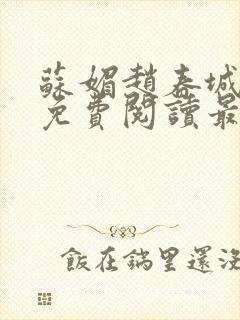 蘇媚趙春城
免費閱讀最
飯在鍋里還沒